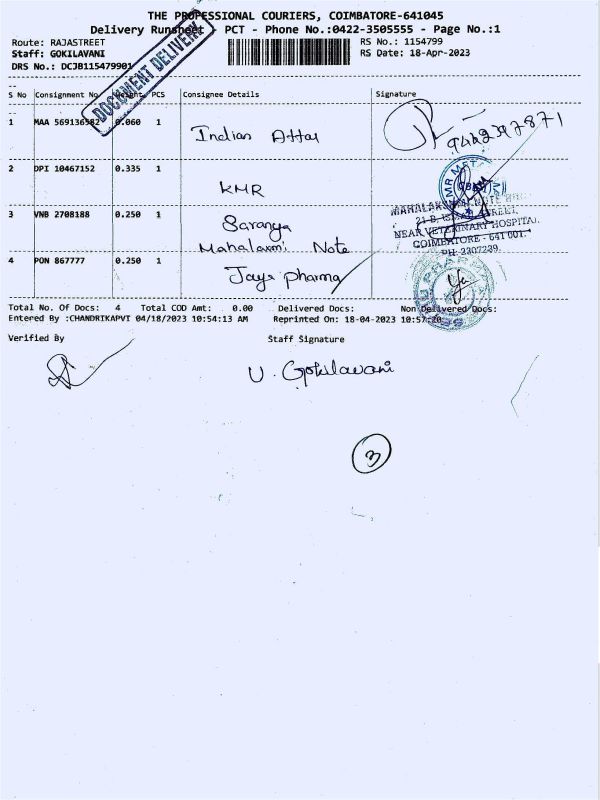 THE PROFESSIONAL COURIERS, COIMBATORE-641045
Delivery Runsheet PCT - Phone No.:0422-3505555 - Page No.:1
Route: RAJASTREET RS No.: 1154799
Staff: GOKILAVANI RS Date: 18-Apr-2023
DRS No.: DCJB115479901
DOCUMENT DELIVERY
S No Consignment No Weight PCS Consignee Details Signature
1 MAA 569136982 0.060 1 Indian Attar 9442397871
2 DPI 10467152 0.335 1 KMR
3 VNB 2708188 0.250 1 Saranya
Mahalaxmi Note
MAHALAKSHMI NOTE
STREET,
NEAR VETERINARY HOSPITAL
COIMBATORE - 641 001.
PH: 2307239.
4 PON 867777 0.250 1 Jaya pharma
Total No. Of Docs: 4 Total COD Amt: 0.00 Delivered Docs: Non Delivered Docs:
Entered By :CHANDRIKAPVT 04/18/2023 10:54:13 AM Reprinted On: 18-04-2023 10:57:20
Verified By Staff Signature
U. Gokilavani
3